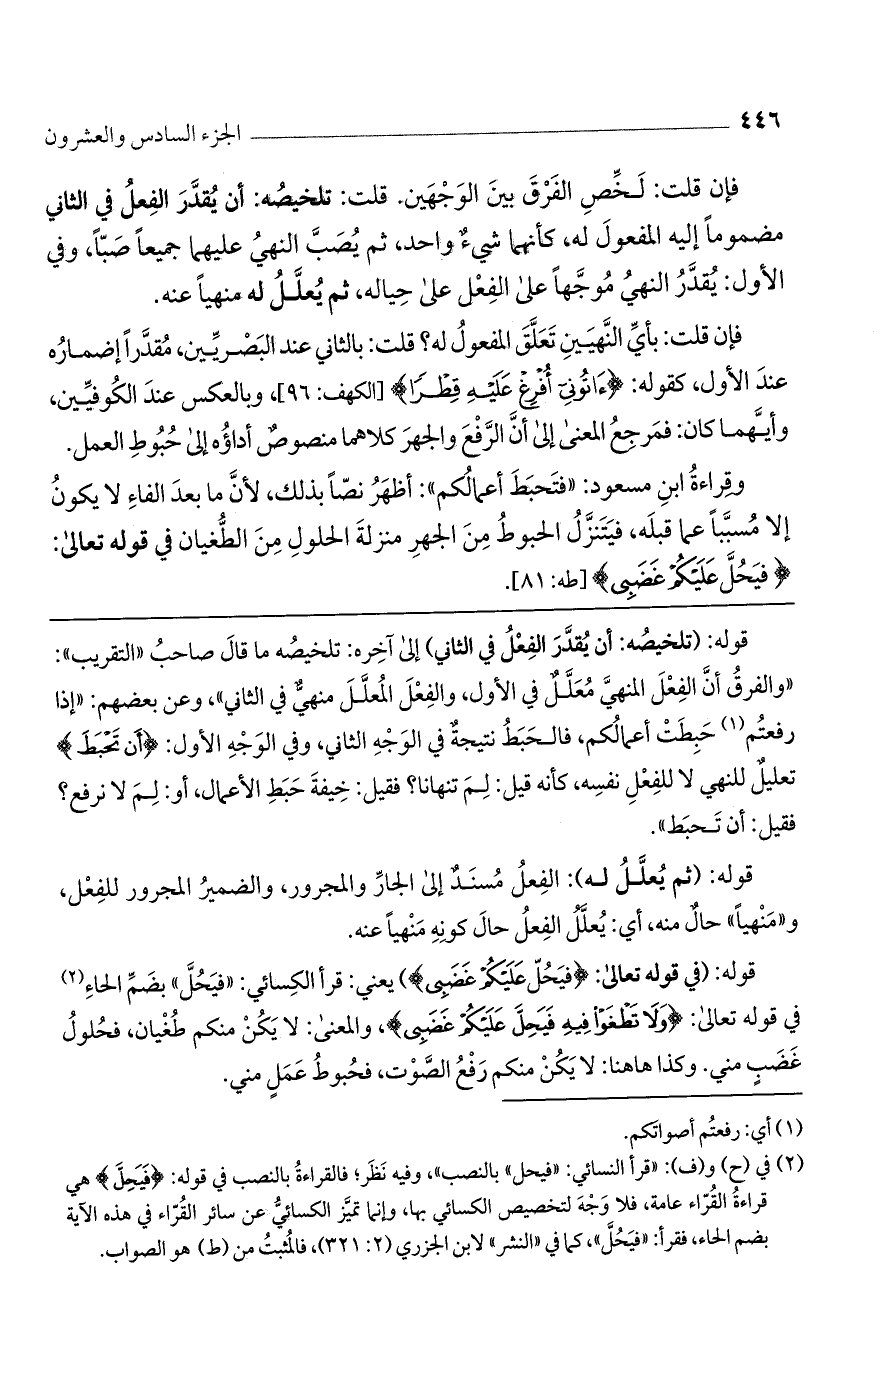 ٤٤٦ الجزء السادس والعشرون
فإن قلت: لَخِّصِ الفَرْقَ بينَ الوَجْهَين. قلت: تلخيصُه: أن يُقدَّرَ الفِعلُ في الثاني
مضموماً إليه المفعولَ له، كأنهما شيءٌ واحد، ثم يُصَبَّ النهيُ عليهما جميعاً صَبّاً، وفي
الأول: يُقدَّرُ النهيُ مُوجَّهاً علىٰ الفِعْل علىٰ حِياله، ثم يُعلَّلُ له منهياً عنه.
فإن قلت: بأيِّ النَّهيَينِ تَعَلَّقَ المفعولُ له؟ قلت: بالثاني عند البَصْريِّين، مُقدَّراً إضمارُه
عندَ الأول، كقوله: ﴿ءَاتُونِىٓ أُفْرِغْ عَلَيْهِ قِطْرًا﴾ [الكهف: ٩٦]، وبالعكس عندَ الكُوفيِّين،
وأيَّهما كان: فمَرجِعُ المعنىٰ إلىٰ أنَّ الرَّفْعَ والجهرَ كلاهما منصوصٌ أداؤُه إلىٰ حُبُوطِ العمل.
وقِراءةُ ابنِ مسعود: «فتَحبَطَ أعمالُكم»: أظهَرُ نصّاً بذلك، لأنَّ ما بعدَ الفاءِ لا يكونُ
إلا مُسبَّباً عما قبلَه، فيَتَنزَّلُ الحبوطُ مِنَ الجهرِ منزلةَ الحلولِ مِنَ الطُّغيان في قوله تعالىٰ:
﴿فَيَحُلَّ عَلَيْكُمْ غَضَبِى﴾ [طه: ٨١].
قوله: (تلخيصُه: أن يُقدَّرَ الفِعْلُ في الثاني) إلىٰ آخِره: تلخيصُه ما قالَ صاحبُ «التقريب»:
«والفرقُ أنَّ الفِعْلَ المنهيَّ مُعَلَّلٌ في الأول، والفِعْلَ المُعلَّلَ منهيٌّ في الثاني»، وعن بعضهم: «إذا
رفعتُم(١) حَبِطَتْ أعمالُكم، فالحَبَطُ نتيجةٌ في الوَجْهِ الثاني، وفي الوَجْهِ الأول: ﴿أَن تَحْبَطَ﴾
تعليلٌ للنهي لا للفِعْلِ نفسِه، كأنه قيل: لِمَ تنهانا؟ فقيل: خِيفةَ حَبَطِ الأعمال، أو: لِمَ لا نرفع؟
فقيل: أن تَحبَط».
قوله: (ثم يُعلَّلُ له): الفِعلُ مُسنَدٌ إلىٰ الجارِّ والمجرور، والضميرُ المجرور للفِعْل،
و«مَنْهياً» حالٌ منه، أي: يُعلَّلُ الفِعلُ حالَ كونِهِ مَنْهياً عنه.
قوله: (في قوله تعالىٰ: ﴿فَيَحُلَّ عَلَيْكُمْ غَضَبِى﴾) يعني: قرأ الكِسائي: «فيَحُلَّ» بضَمِّ الحاءِ(٢)
في قوله تعالىٰ: ﴿وَلَا تَطْغَوْا۟ فِيهِ فَيَحِلَّ عَلَيْكُمْ غَضَبِى﴾، والمعنىٰ: لا يَكُنْ منكم طُغْيان، فحُلولُ
غَضَبٍ مني. وكذا هاهنا: لا يَكُنْ منكم رَفْعُ الصَّوْت، فحُبوطُ عَمَلٍ مني.
(١) أي: رفعتُم أصواتكم.
(٢) في (ح) و(ف): «قرأ النسائي: «فيحل» بالنصب»، وفيه نَظَر؛ فالقراءةُ بالنصب في قوله: ﴿فَيَحِلَّ﴾ هي
قراءةُ القُرّاء عامة، فلا وَجْهَ لتخصيص الكسائي بها، وإنما تميَّز الكسائيُّ عن سائر القُرّاء في هذه الآية
بضم الحاء، فقرأ: «فيَحُلَّ»، كما في «النشر» لابن الجزري (٢: ٣٢١)، فالمُثبتُ من (ط) هو الصواب.